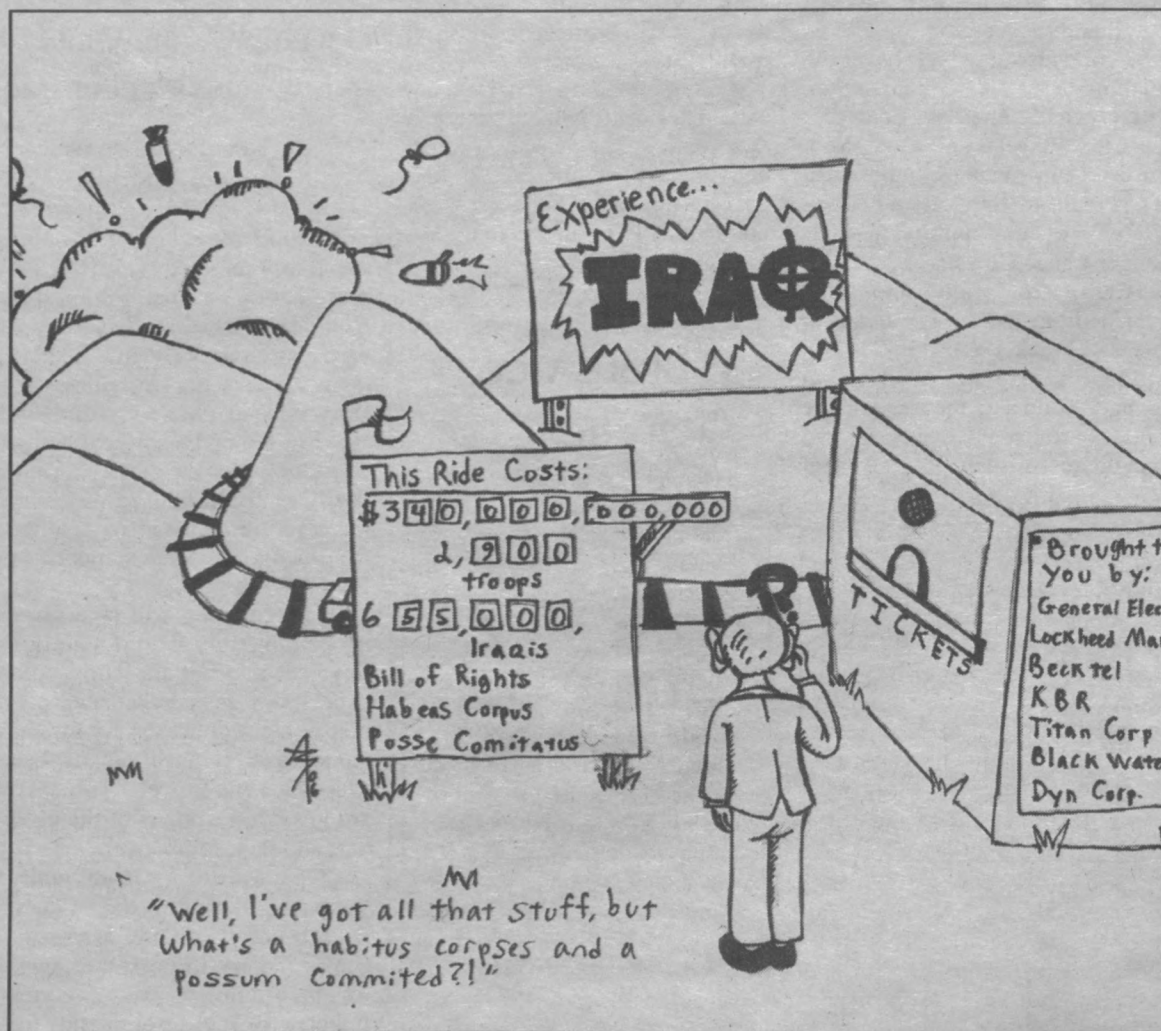 Experience...
IRAQ
This Ride Costs:
$340,000,000,000
2,900
troops
655,000,
Iraqis
Bill of Rights
Habeas Corpus
Posse Comitatus
?
TICKETS
"Brought t
You by:
General Elec
Lockheed Ma
Becktel
KBR
Titan Corp
Black Wate
Dyn Corp.
"Well, I've got all that stuff, but
what's a habitus corpses and a
possum commited?!"